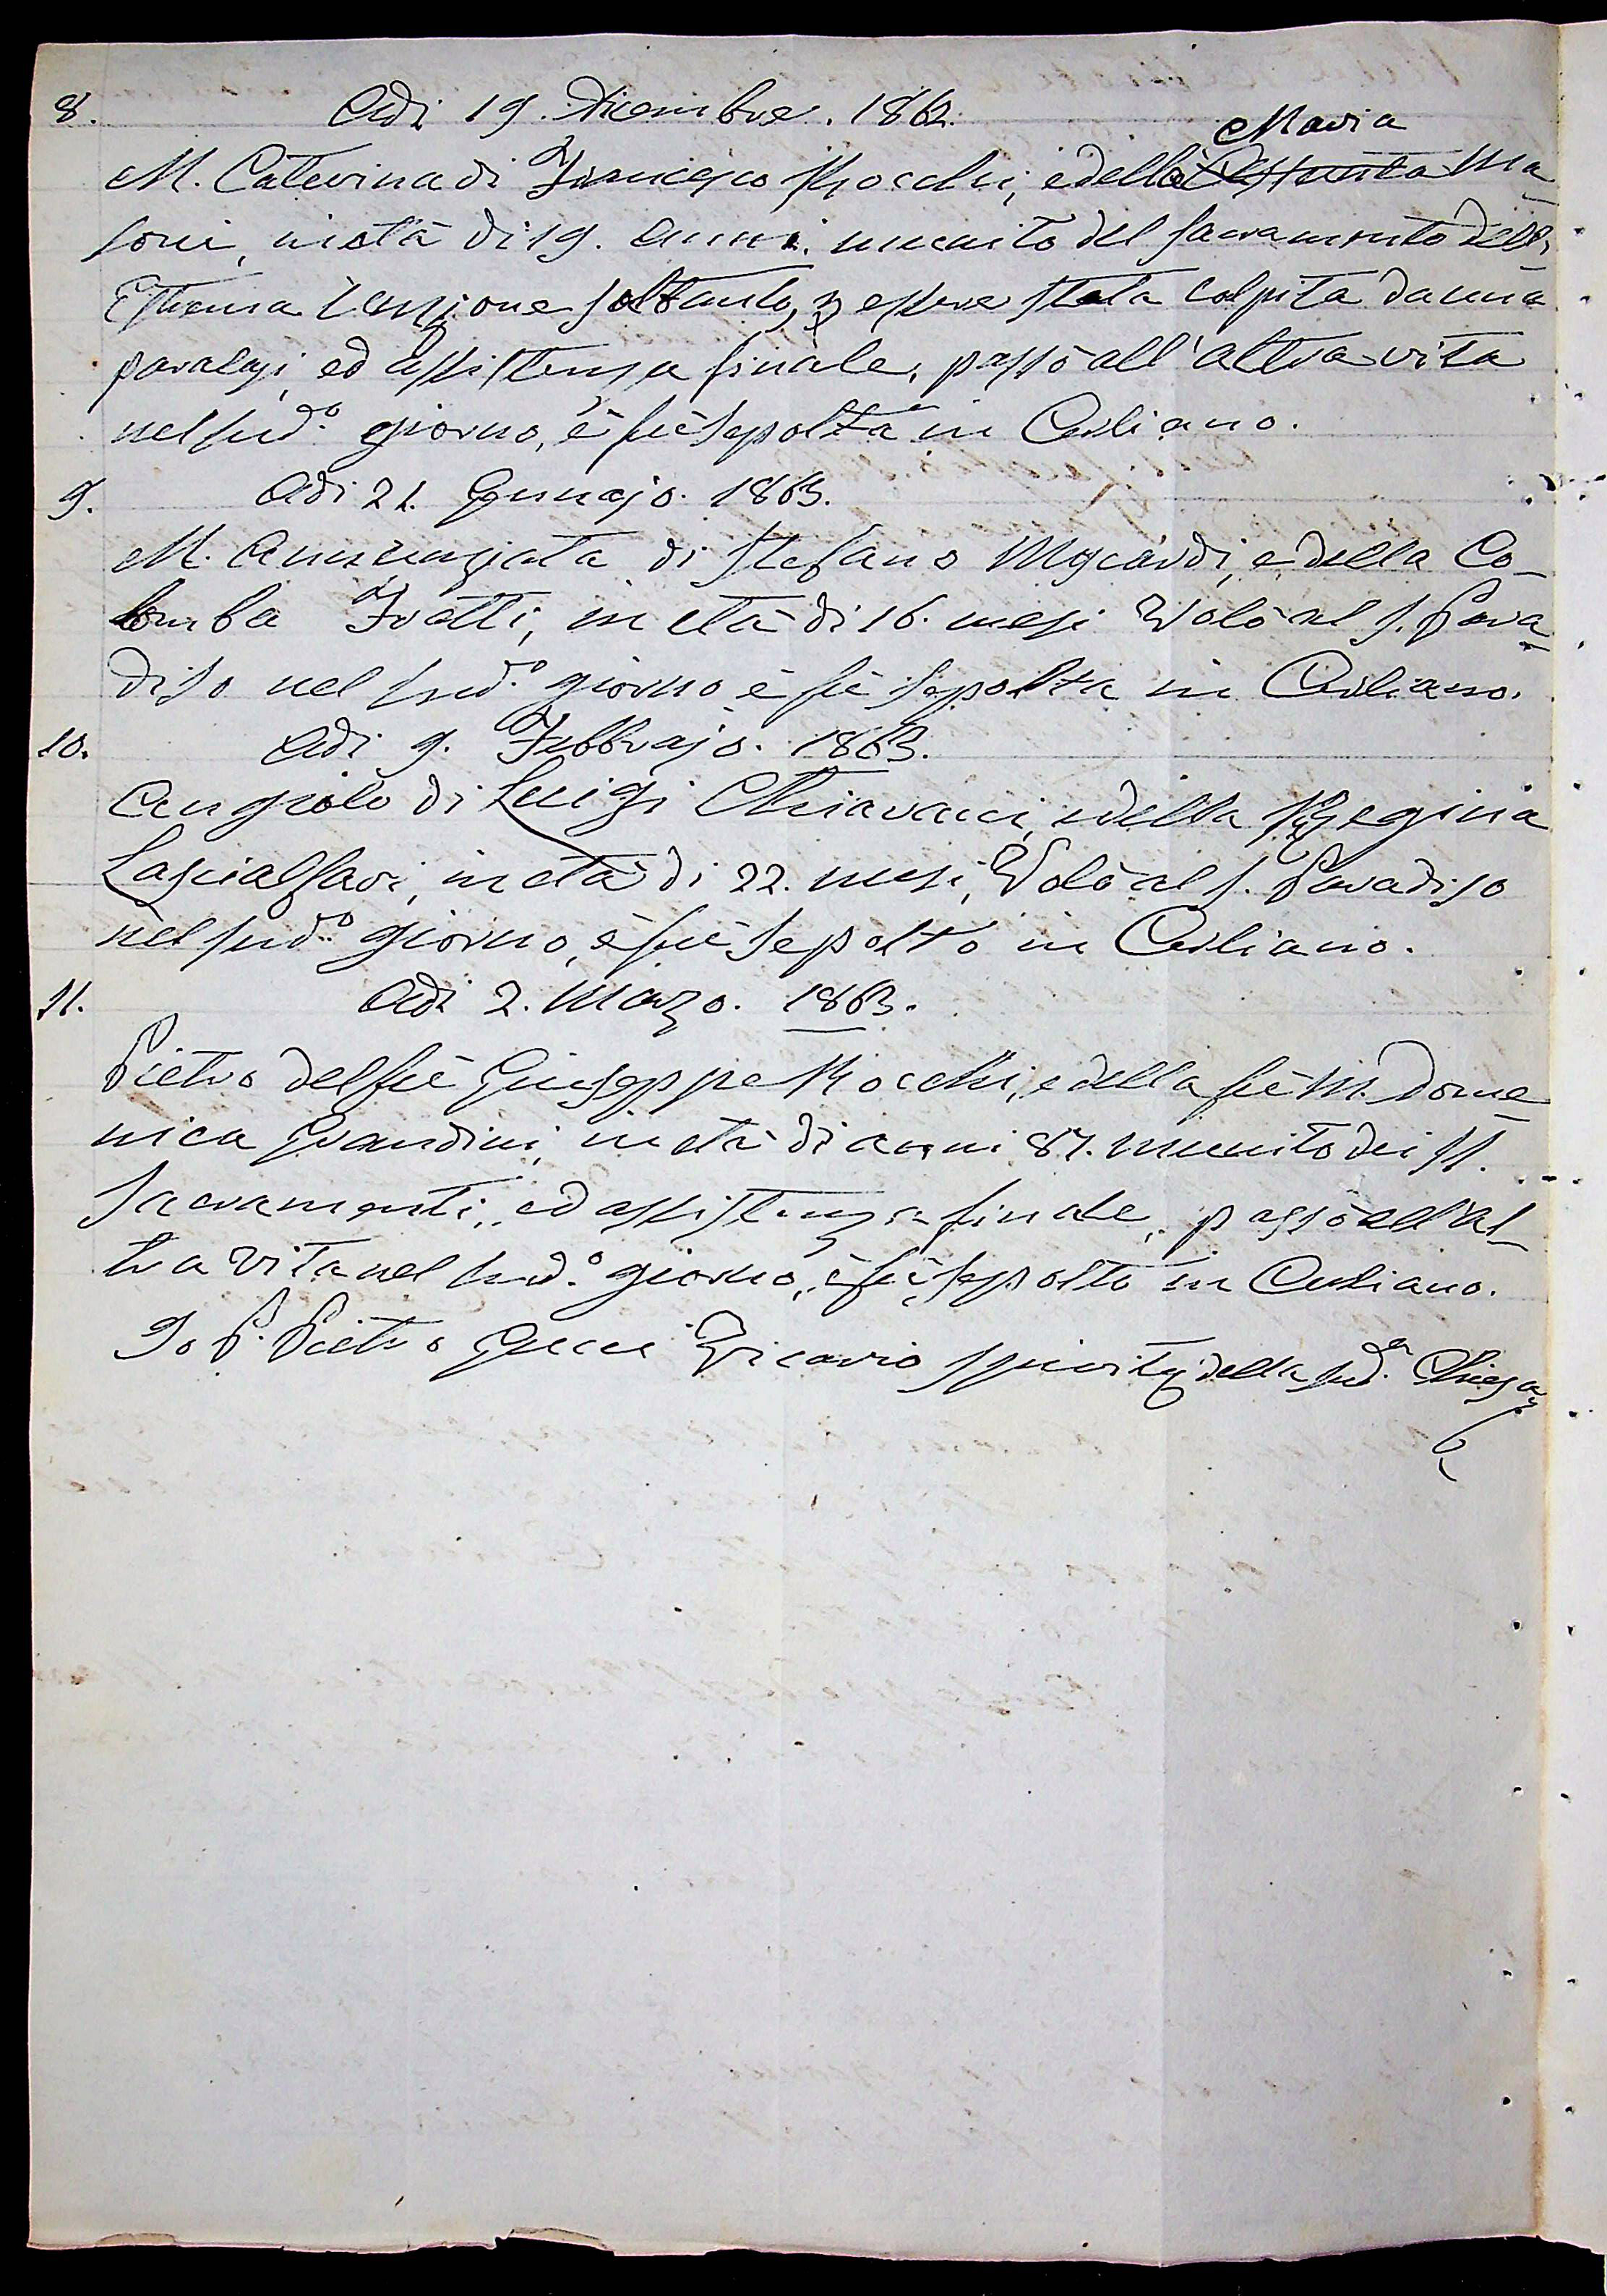 8. Adi 19. Dicembre. 1862.
Maria
M. Caterina di Francesco Rocchi, e della Assunta Ma-
soni, in età di 19. anni. munito del Sacramento dell'
Estrema Unzione soltanto, p essere stata colpita da una
paralasi, ed assistenza finale, passò all'altra vita
nel sud.º giorno, è fù sepolta in Cerliano.
9. Adi 21. Gennajo. 1863.
M. Annunziata di Stefano e della Co-
lomba Fratti, in età di 16. mesi Volò al S. Para-
diso nel sud.º giorno è fù sepolta in Cerliano.
10. Adi 9. Febbrajo. 1863.
Angiolo di Luigi Chiavacci, e della Regina
Lascialfari, in età di 22. mesi, Volò al S. Paradiso
nel sud.º giorno, è fù sepolto in Cerliano.
11. Adi 2. Marzo. 1863.
Pietro del fù Giuseppe Rocchi, e della fù M. Dome-
nica Grandini, in età di anni 87. munito dei SS.
Sacramenti, ed assistenza finale, passò all'al-
tra vita nel sud.º giorno, è fù sepolto in Cerliano.
Io P. Pietro Gucci Vicario Spirit.e della sud.a Chiesa